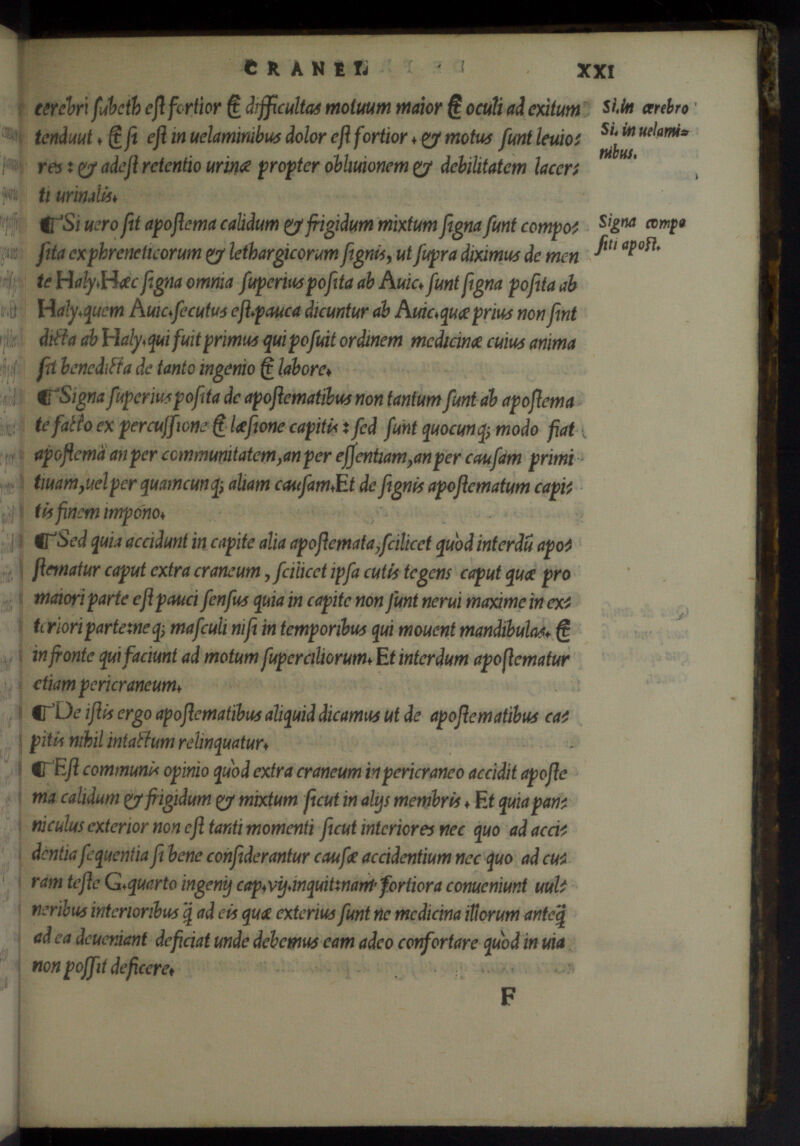 CRANEI.
XXI
cerebri subeth est fortior & difficultas motuum maior & oculi ad exitum
tenduut. & si est in uelaminibus dolor est fortior. & motus sunt leuio=
res: & adest retentio urinæ propter obliuionem & debilitatem lacer=
ti urinalis.
¶Si uero sit apostema calidum & frigidum mixtum signa sunt compo=
sita ex phreneticorum & lethargicorum signis, ut supra diximus de men
te Haly.Hæc signa omnia superius posita ab Auic. sunt signa posita ab
Haly.quem Auic.secutus est.pauca dicuntur ab Auic.quæ prius non sint
dicta ab Haly.qui fuit primus qui posuit ordinem medicinæ cuius anima
sit benedicta de tanto ingenio & labore.
¶Signa superius posita de apostematibus non tantum sunt ab apostema
te facto ex percussione & læsione capitis: sed sunt quocunq; modo fiat
apostema an per communitatem,an per essentiam,an per causam primi
tiuam,uel per quamcunq; aliam causam.Et de signis apostematum capi=
tis finem impono.
¶Sed quia accidunt in capite alia apostemata,scilicet quod interdū apo=
stematur caput extra craneum, scilicet ipsa cutis tegens caput quæ pro
maiori parte est pauci sensus quia in capite non sunt nerui maxime in ex=
teriori parte:neq; masculi nisi in temporibus qui mouent mandibulas. &
in fronte qui faciunt ad motum superciliorum. Et interdum apostematur
etiam pericraneum.
¶De istis ergo apostematibus aliquid dicamus ut de apostematibus ca=
pitis nihil intactum relinquatur.
¶Est communis opinio quod extra craneum in pericraneo accidit aposte
ma calidum & frigidum & mixtum sicut in alijs membris. Et quia pan=
niculus exterior non est tanti momenti sicut interiores nec quo ad acci=
dentia sequentia si bene considerantur causæ accidentium nec quo ad cu=
ram teste G.quarto ingenij cap.vij.inquit:nam fortiora conueniunt uul=
neribus interioribus q̄ ad eis quæ exterius sunt ne medicina illorum anteq̄
ad ea deueniant deficiat unde debemus eam adeo confortare quod in uia
non possit deficere.
F
Si.in cerebro
Si. in uelami=
nibus.
Signa compo
siti apost.